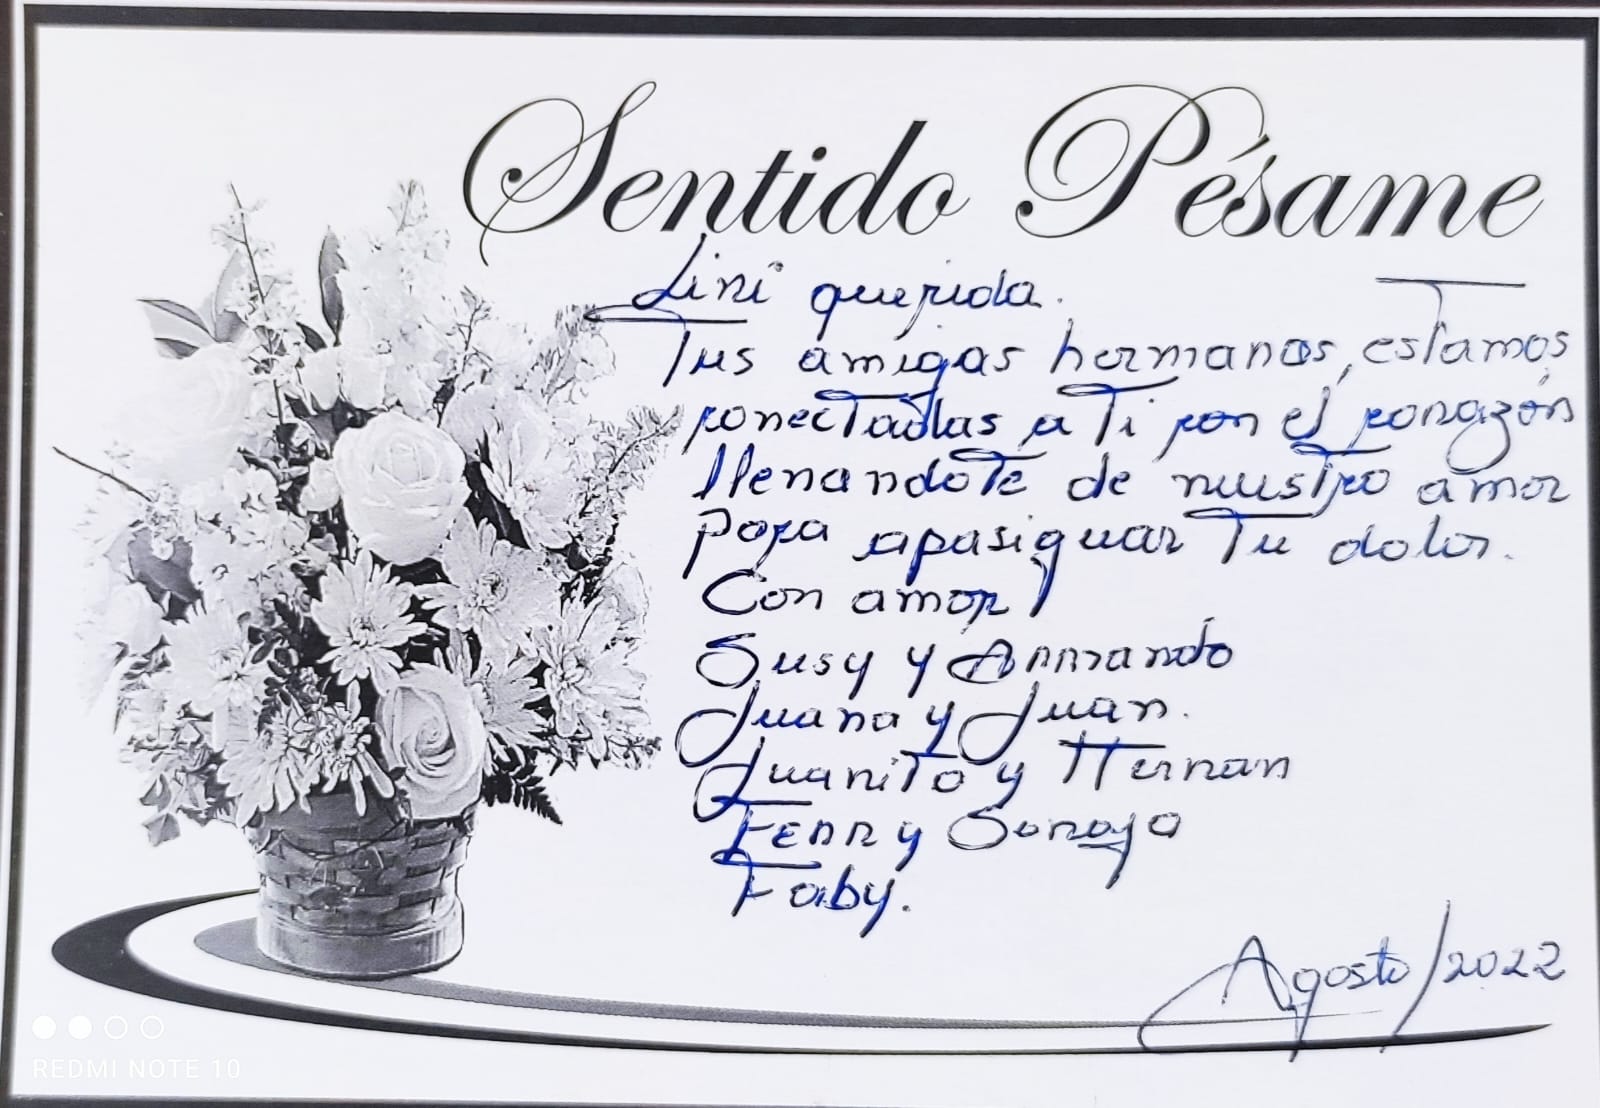 Sentido Pésame
Lini querida.
Tus amigas hermanas, estamos
conectadas a Ti con el corazón
llenandote de nuestro amor
para apasiguar Tu dolor.
Con amor
Susy y Armando
Juana y Juan.
Juanito y Hernan
Fenn y Soraya
Faby.
Agosto/2022
REDMI NOTE 10